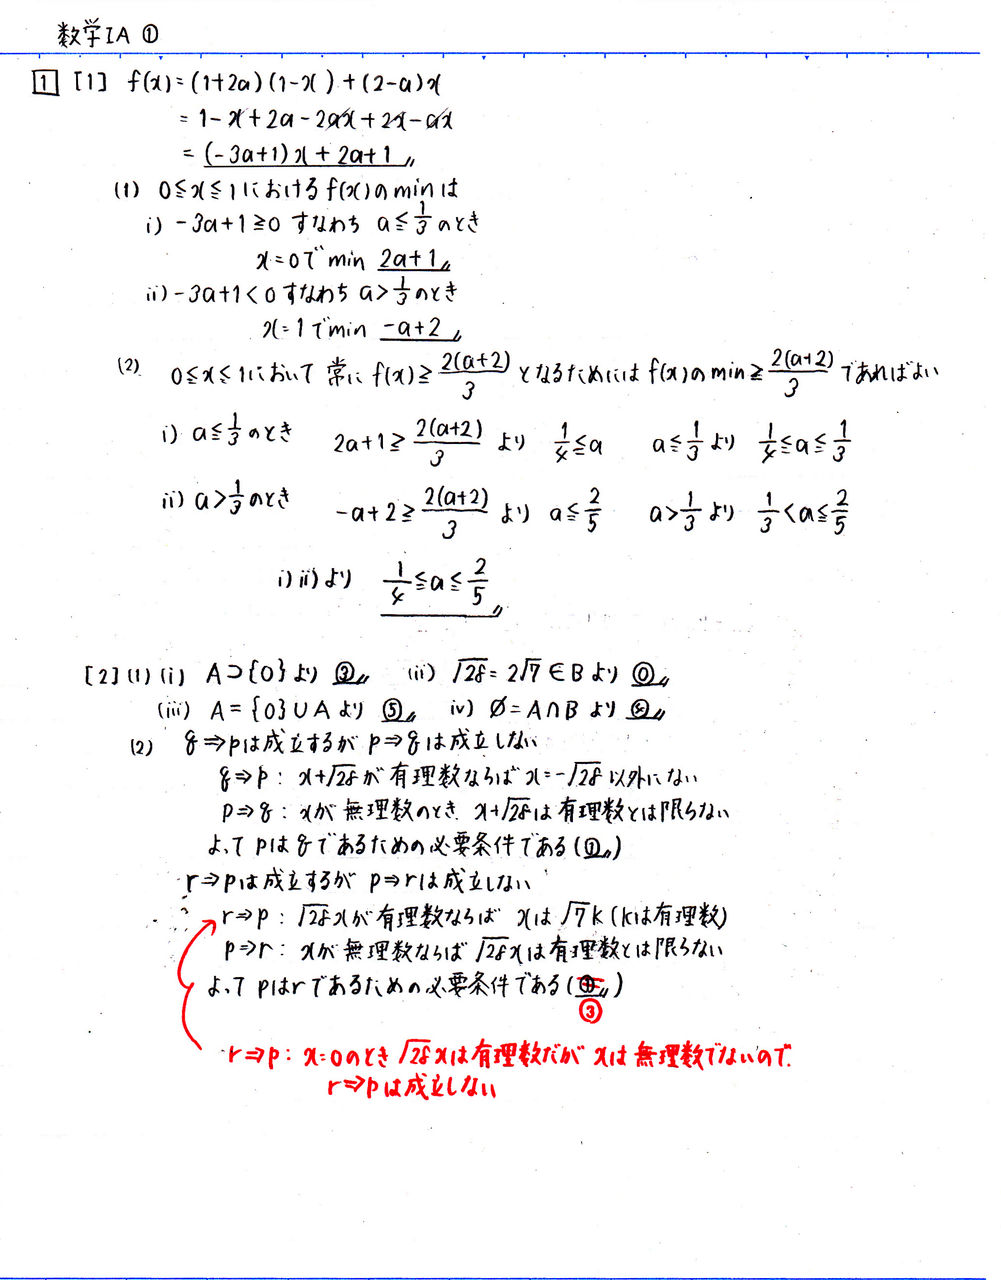 数学IA ①
1 [1] f(x)=(1+2a)(1-x)+(2-a)x
=1-x+2a-2ax+2x-ax
=(-3a+1)x+2a+1〃
(1) 0≦x≦1におけるf(x)のminは
i) -3a+1≧0 すなわち a≦1/3のとき
x=0でmin 2a+1〃
ii) -3a+1<0 すなわち a>1/3のとき
x=1でmin -a+2〃
(2) 0≦x≦1において 常に f(x)≧2(a+2)/3 となるためにはf(x)のmin≧2(a+2)/3であればよい
i) a≦1/3のとき 2a+1≧2(a+2)/3 より 1/4≦a a≦1/3より 1/4≦a≦1/3
ii) a>1/3のとき -a+2≧2(a+2)/3 より a≦2/5 a>1/3より 1/3<a≦2/5
i)ii)より 1/4≦a≦2/5〃
[2](1)(i) A⊃{0}より ③〃 (ii) √28=2√7∈Bより ⓪〃
(iii) A={0}∪Aより ⑤〃 iv) ∅=A∩Bより ④〃
(2) q⇒pは成立するが p⇒qは成立しない
q⇒p: x+√28が有理数ならばx=-√28以外にない
p⇒q: xが無理数のとき x+√28は有理数とは限らない
よって pはqであるための必要条件である(①〃)
r⇒pは成立するが p⇒rは成立しない
r⇒p: √28xが有理数ならば xは√7k(kは有理数)
p⇒r: xが無理数ならば√28xは有理数とは限らない
よって pはrであるための必要条件である(①〃)
③
r⇒p: x=0のとき√28xは有理数だが xは無理数でないので
r⇒pは成立しない